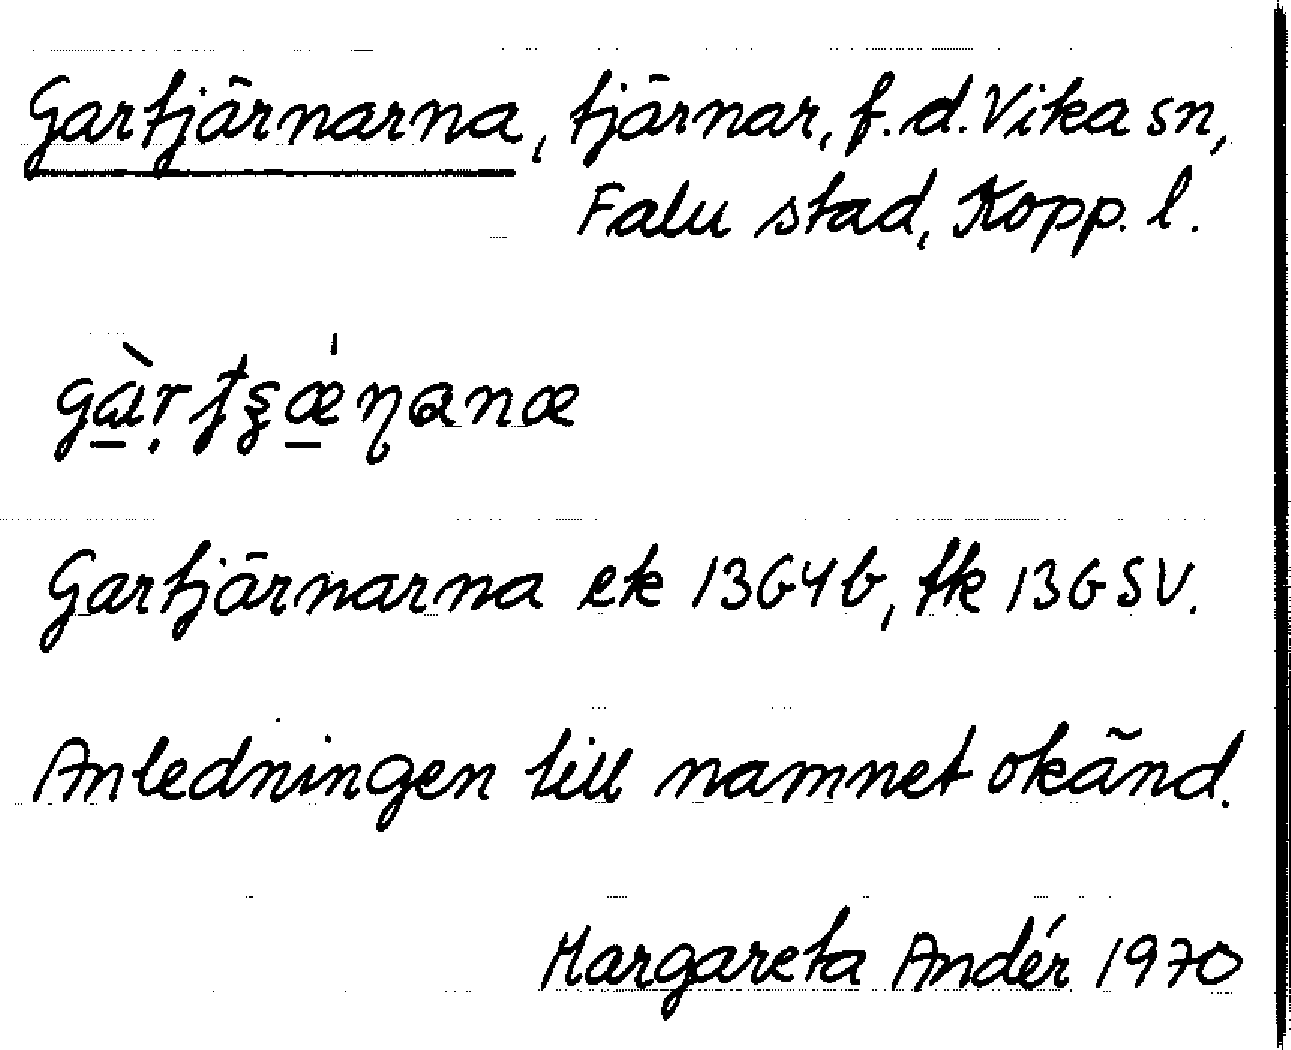 Gartjärnarna, tjärnar, f.d. Vika sn,
Falu stad, Kopp. l.
Gartjärnarna ek 13G4b, fk 13GSV.
Anledningen till namnet okänd.
Margareta Andér 1970